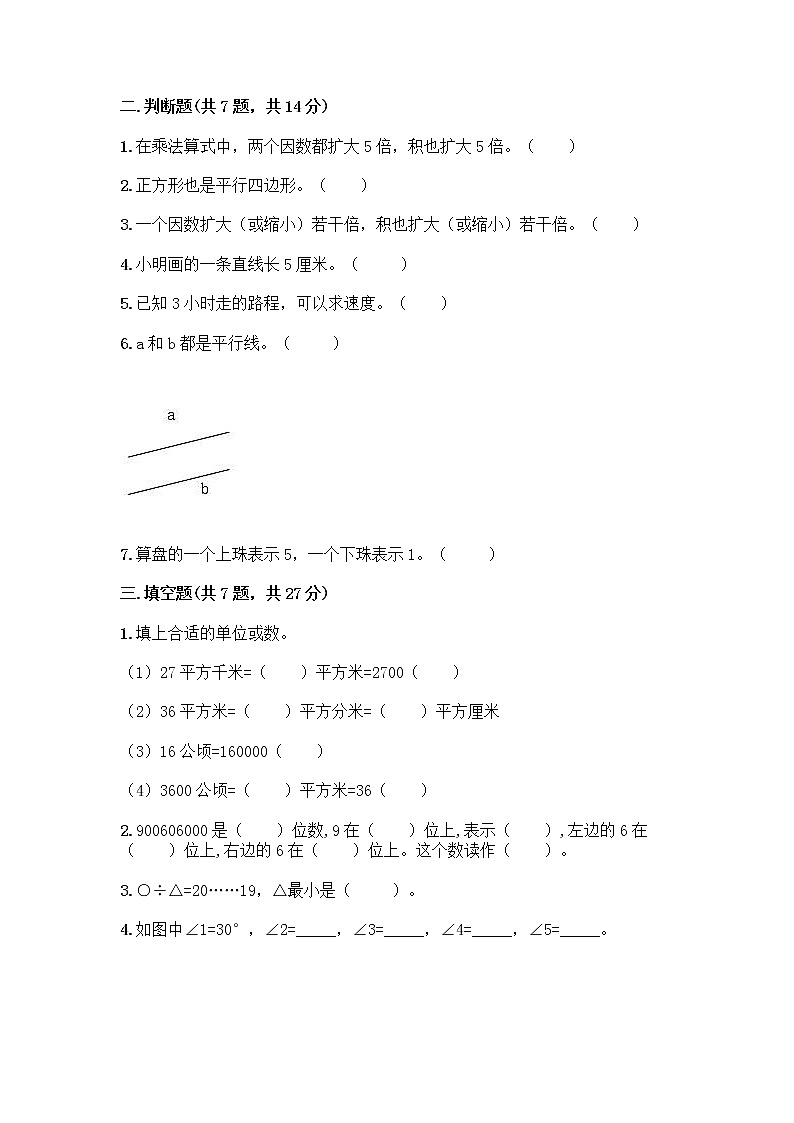 二.判断题(共7题，共14分)
1.在乘法算式中，两个因数都扩大5倍，积也扩大5倍。（　　）
2.正方形也是平行四边形。（　　）
3.一个因数扩大（或缩小）若干倍，积也扩大（或缩小）若干倍。（　　）
4.小明画的一条直线长5厘米。（　　）
5.已知3小时走的路程，可以求速度。（　　）
6.a和b都是平行线。（　　）
a
b
7.算盘的一个上珠表示5，一个下珠表示1。（　　）
三.填空题(共7题，共27分)
1.填上合适的单位或数。
（1）27平方千米=（　　）平方米=2700（　　）
（2）36平方米=（　　）平方分米=（　　）平方厘米
（3）16公顷=160000（　　）
（4）3600公顷=（　　）平方米=36（　　）
2.900606000是（　　）位数,9在（　　）位上,表示（　　）,左边的6在
（　　）位上,右边的6在（　　）位上。这个数读作（　　）。
3.○÷△=20……19，△最小是（　　）。
4.如图中∠1=30°，∠2=_____，∠3=_____，∠4=_____，∠5=_____。